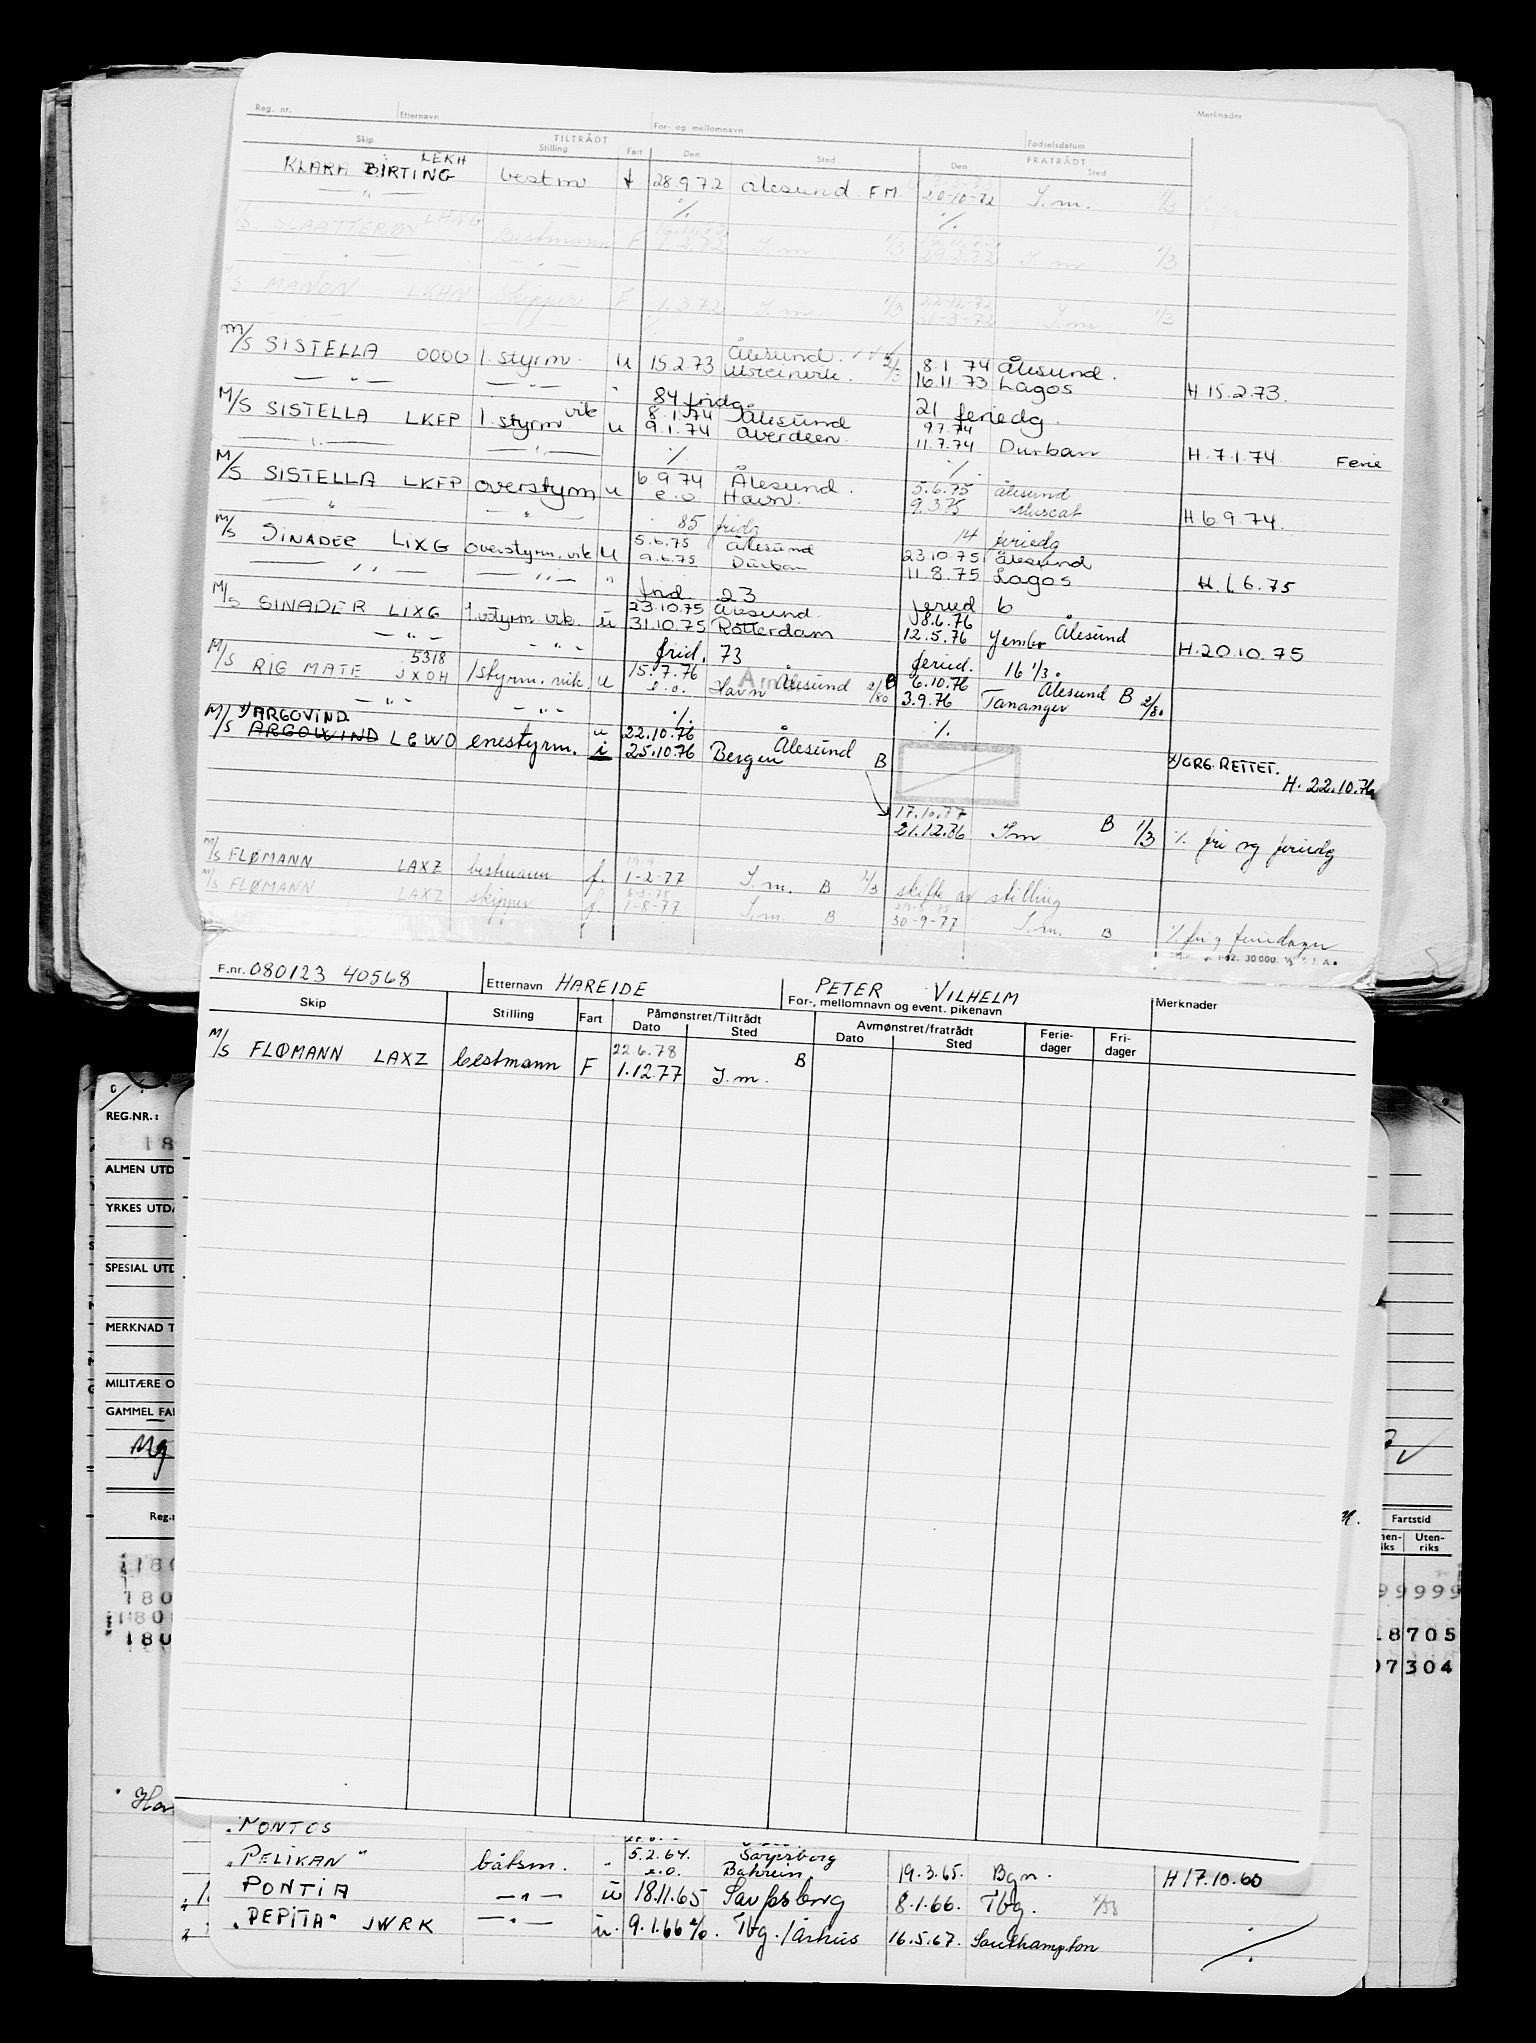 Reg. nr. Etternavn For- og mellomnavn Merknader
Fødselsdatum
TILTRÅDT FRATRÅDT
Skip Stilling Fart Den Sted Den Sted
KLARA BIRTING LEKH bestm f 28.9.72 Ålesund F.M. 20-10-72 I.m. 1/3
— " — ./. ./.
M/S SLAATTERØY LHNG Bestmann F 1.2.72 I.m 1/3 29.2.72 I.m 1/3
M/S MANON LKHN skipper F 1.3.72 I.m. 1/3 22-12-72 1/3
21-3-72 I.m
M/S SISTELLA 0000 1. styrm. u 15.2.73 Ålesund. 2/3 8.1.74 Ålesund.
— " — — " — " 16.11.73 Lagos H 15.2.73.
84 fridg. 21 feriedg.
M/S SISTELLA LKFP 1. styrm vik u 8.1.74 Ålesund 9.7.74
— " — — " — 9.1.74 Averdeen. 11.7.74 Durban H.7.1.74 Ferie
./. ./.
M/S SISTELLA LKFP overstyrm u 6.9.74 Ålesund. 5.6.75 Ålesund
" — " — e.o. Havn. 9.3.75 Muscat H 6.9.74.
85 fridg 14 feriedg
M/S SINADER LIXG overstyrm. vik u 5.6.75 Ålesund 23.10.75 Ålesund
— " — — " — " 9.6.75 Durban 11.8.75 Lagos H.1.6.75
frid. 23 feried 6
M/S SINADER LIXG 1. styrm. vik. u 23.10.75 Ålesund. 18.6.76 Ålesund
— " — — " — 31.10.75 Rotterdam 12.5.76 H.20.10.75
frid. 73 feried. 16 1/3.
M/S RIG MATE 5318 JXOH 1 styrm. vik. u 15.7.76 Ålesund 2/80 B 6.10.76 Ålesund B 2/80
— " — — " — e.o. Havn 3.9.76 Tananger
./. ./.
x) ARGOVIND u 22.10.76 Ålesund
M/S ARGOWIND LGWO enestyrm. i 25.10.76 Bergen B x) GRG. RETTET.
H. 22.10.76
17.10.77
21.12.76 I.m B 1/3 ./. fri og feriedg
M/S FLØMANN LAXZ bestmann f. 1-2-77 I.m. B 2/3 skifte av stilling
M/S FLØMANN LAXZ skipper f. 1-8-77 I.m. B 30-9-77 I.m. B ./. fri og feriedager
30000.
F.nr. 080123 40568 Etternavn HAREIDE PETER VILHELM
For-, mellomnavn og event. pikenavn Merknader
Skip Stilling Fart Påmønstret/Tiltrådt Avmønstret/fratrådt Ferie-dager Fri-dager
Dato Sted Dato Sted
M/S FLØMANN LAXZ bestmann F 22.6.78 B
1.12.77 I.m.
REG.NR.:
18
ALMEN UTD
YRKES UTDA
SPESIAL UTD
MERKNAD T
MILITÆRE O
GAMMEL FA
Reg.n
Fartstid
nen-riks Uten-riks
180
180
180
180
99999
18705
07304
PONTOS
"PELIKAN" båtsm. " 5.2.64. Sarpsborg
e.o. Bahrein. 19.3.65. Bgn. H 17.10.60
PONTIA — " — u 18.11.65 Sarpsborg 8.1.66. Tbg.
"PEPITA" JWRK — " — u. 9.1.66 Tbg. / Århus 16.5.67. Southampton ./.